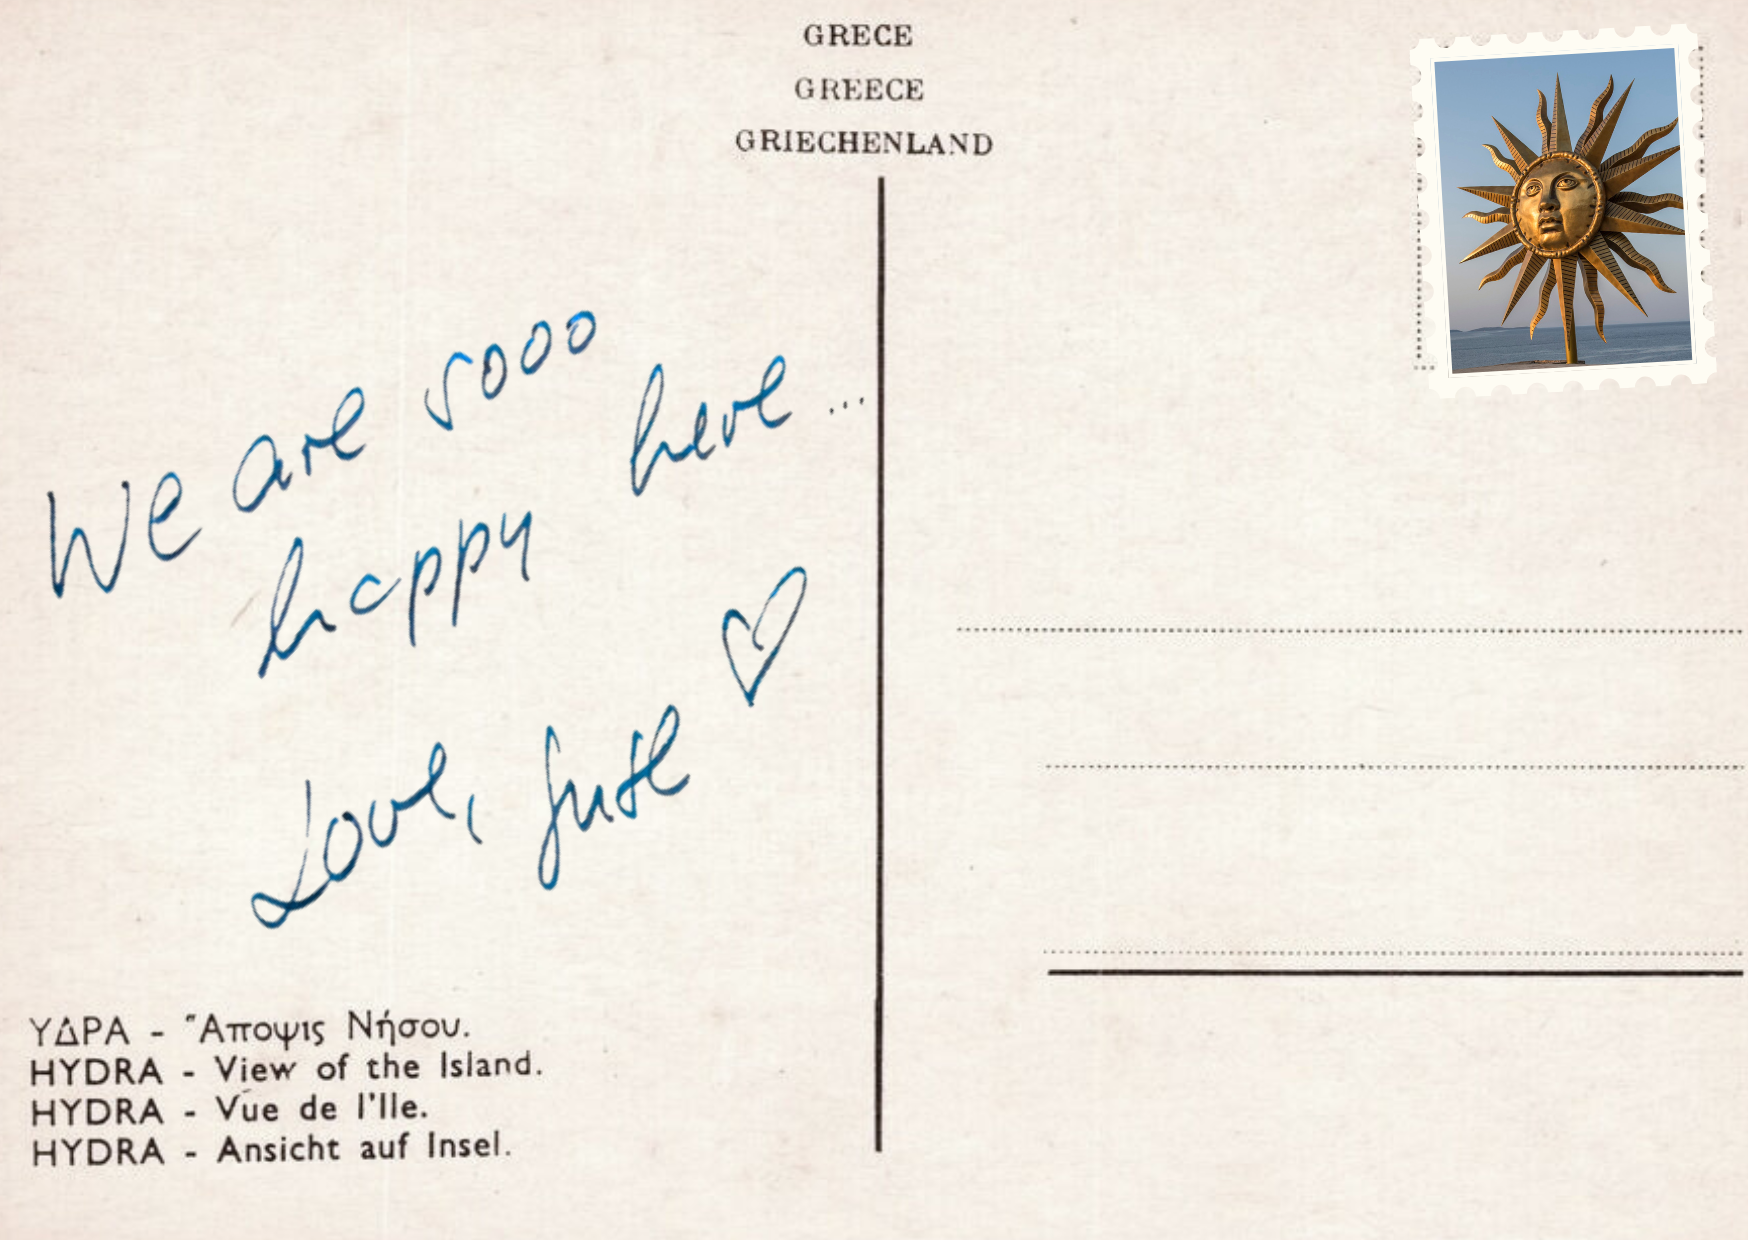 GRECE
GREECE
GRIECHENLAND
We are sooo
happy here...
Love, Juste ♡
ΥΔΡΑ - "Αποψις Νήσου.
HYDRA - View of the Island.
HYDRA - Vue de l'Ile.
HYDRA - Ansicht auf Insel.